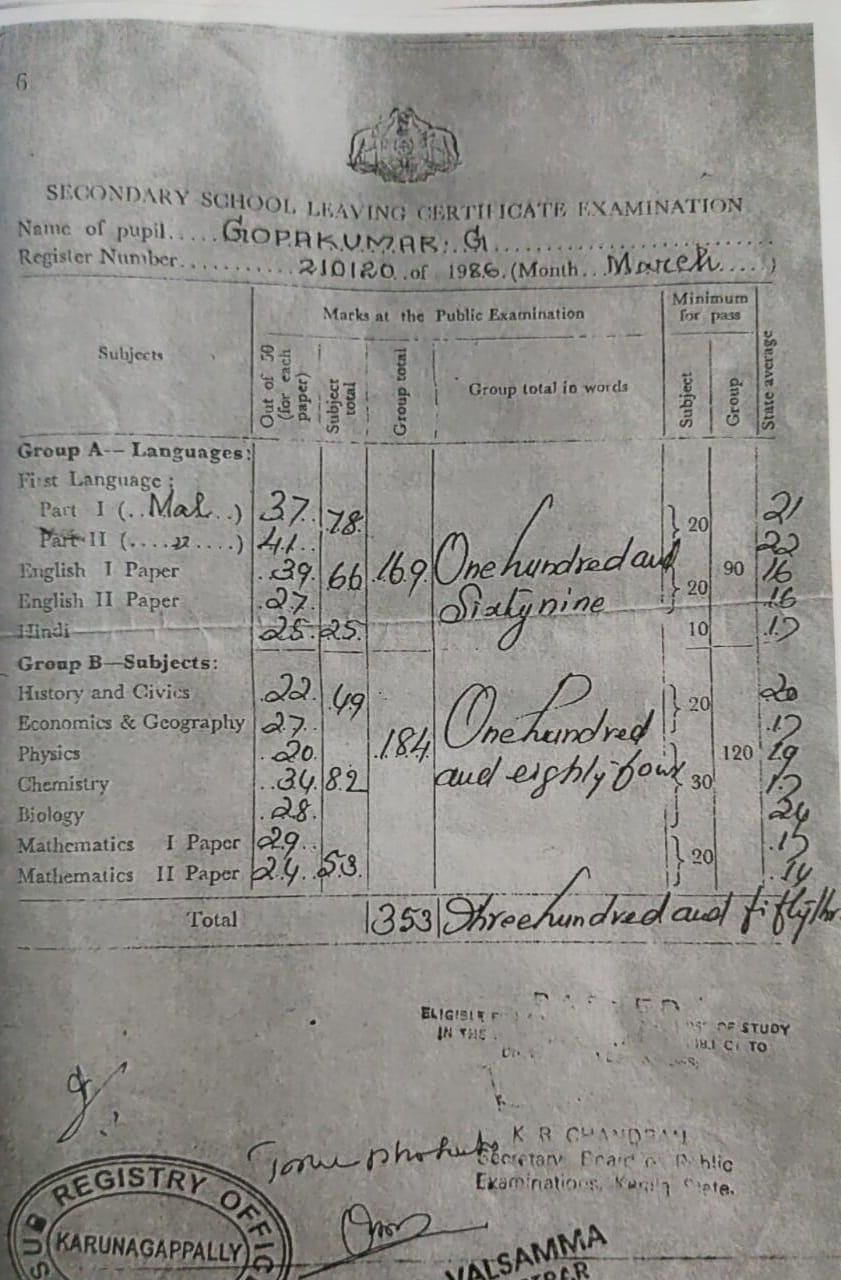 6
SECONDARY SCHOOL LEAVING CERTIFICATE EXAMINATION
Name of pupil..... GOPAKUMAR. G.....................
Register Number........... 210120..of 1986.(Month...March.....)
Subjects
Marks at the Public Examination
Minimum for pass
Out of 50 (for each paper)
Subject total
Group total
Group total in words
Subject
Group
State average
Group A— Languages:
First Language :
Part I (..Mal..) 37. 78. 20 21
Part II (.... ,, ....) 41.. 22
English I Paper .39. 66 .169. One hundred and 90 16
English II Paper .27. Sixty nine 20 .16
Hindi 25. 25. 10
Group B—Subjects:
History and Civics .22. 49 20 20
Economics & Geography 27.. One hundred
Physics .20. .184. 120 19
Chemistry ..34. 82 and eighty four 30
Biology .28. 24
Mathematics I Paper 29..
Mathematics II Paper 24.. 53. 20 .14
Total 353 Three hundred and fifty thr
ELIGIBLE
IN THE OF STUDY
TO
True photostat
K R CHANDRAN
Secretary Board of Public
Examinations, Kerala State.
SUB REGISTRY OFFICE
KARUNAGAPPALLY
VALSAMMA